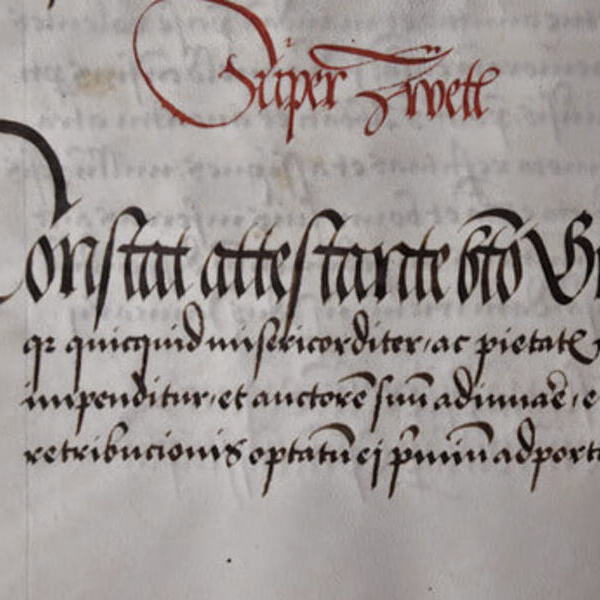 Super Zwetl
Constat attestante bt̄o Gr
qꝛ quicquid misericorditer, ac pietatꝭ
impenditur, et auctorē suū adiuuaē, e
retribucionis optatū ej p̄miū adport